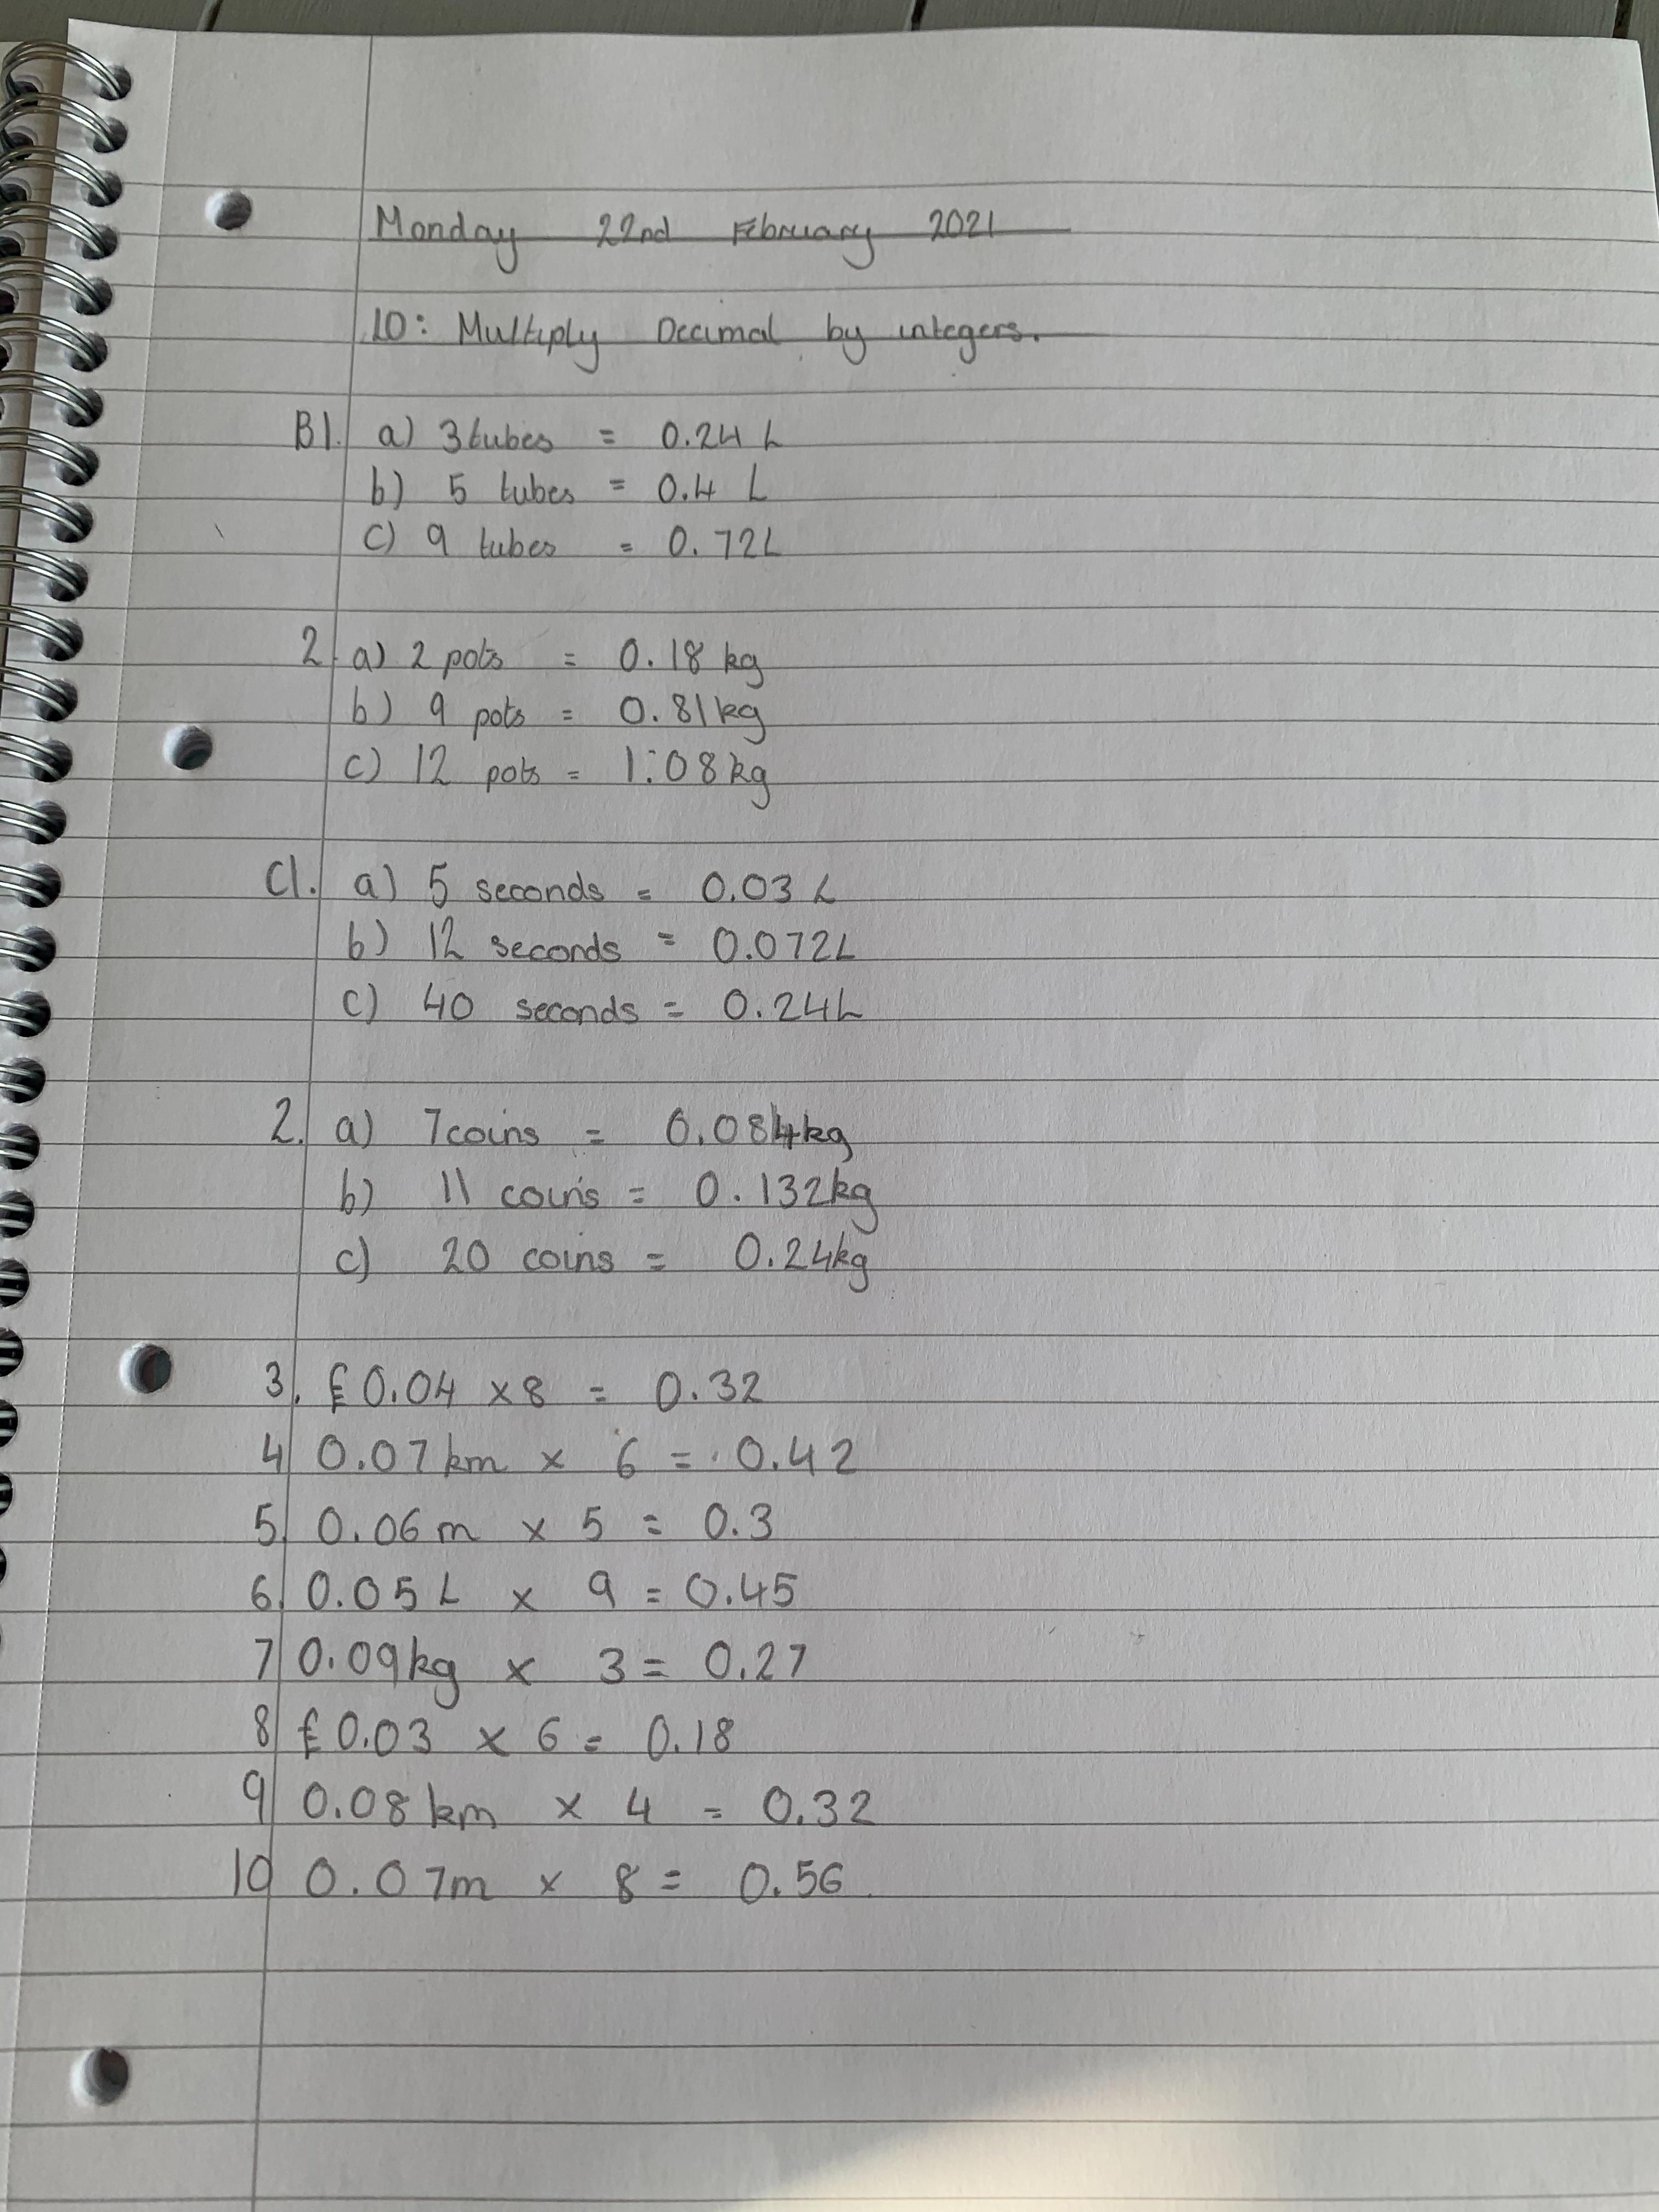 Monday 22nd February 2021
LO: Multiply Decimal by integers.
B1. a) 3 tubes = 0.24 L
b) 5 tubes = 0.4 L
c) 9 tubes = 0.72L
2. a) 2 pots = 0.18 kg
b) 9 pots = 0.81kg
c) 12 pots = 1.08kg
C1. a) 5 seconds = 0.03 L
b) 12 seconds = 0.072L
c) 40 seconds = 0.24L
2. a) 7 coins = 0.084kg
b) 11 coins = 0.132kg
c) 20 coins = 0.24kg
3. £0.04 x 8 = 0.32
4 0.07km x 6 = 0.42
5. 0.06m x 5 = 0.3
6. 0.05L x 9 = 0.45
7 0.09kg x 3 = 0.27
8 £0.03 x 6 = 0.18
9 0.08km x 4 = 0.32
10 0.07m x 8 = 0.56